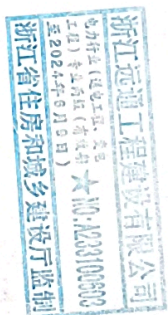 浙江远通工程建设有限公司
电力行业(送电工程、变电
工程)专业丙级(有效期
至2024年6月6日)
★NO:A033100603
浙江省住房和城乡建设厅监制